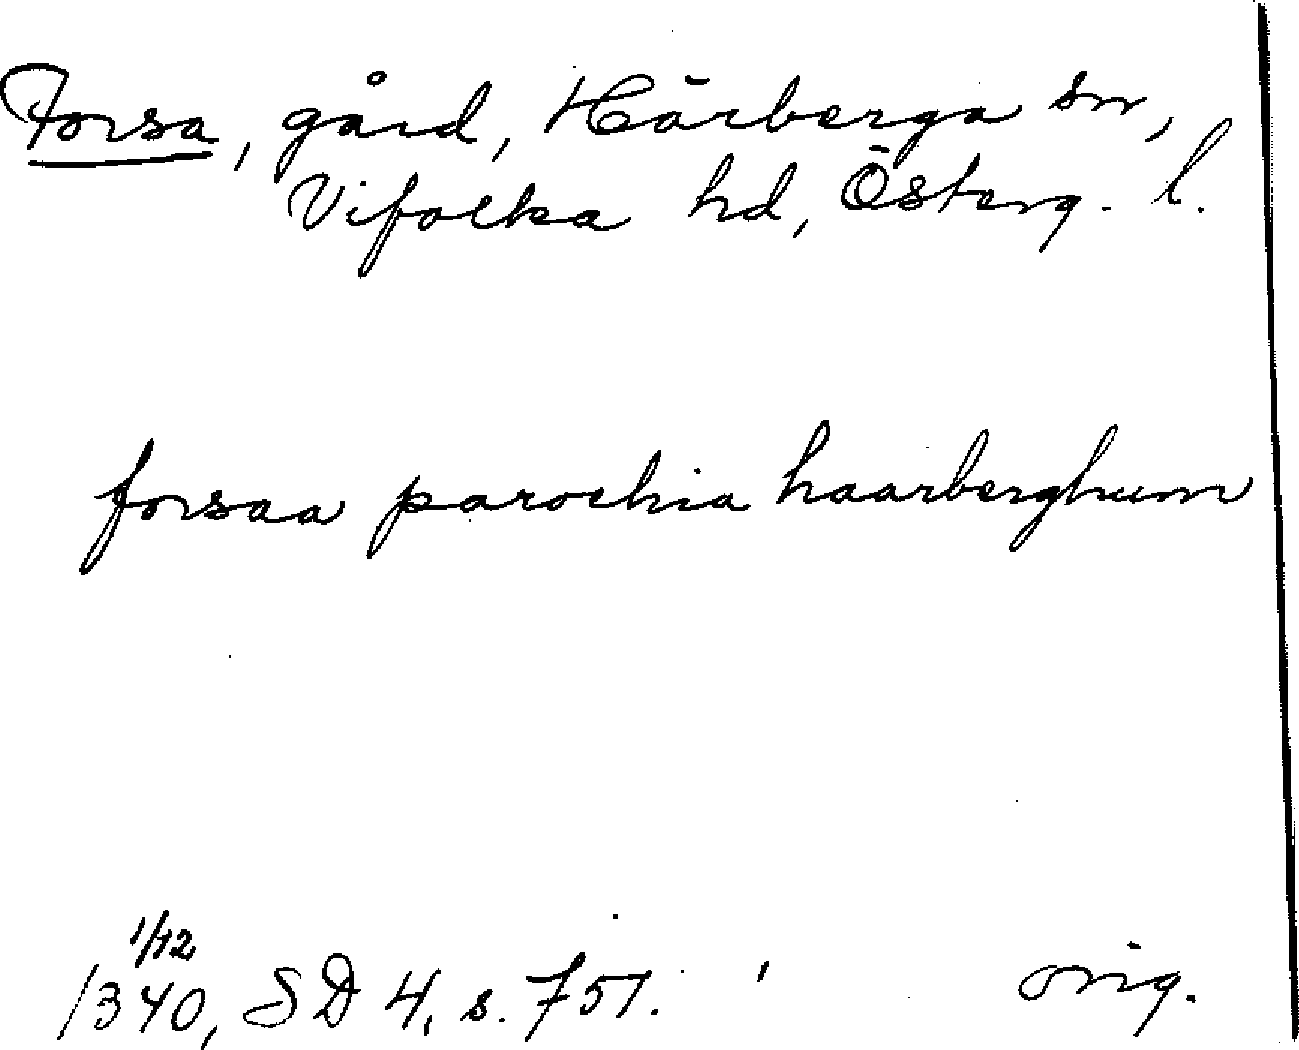 Forsa, gård, Härberga sn,
Vifolka hd, Österg. l.
forsaa parochia haarberghum
1/12
1340, SD 4, s. 751.
orig.